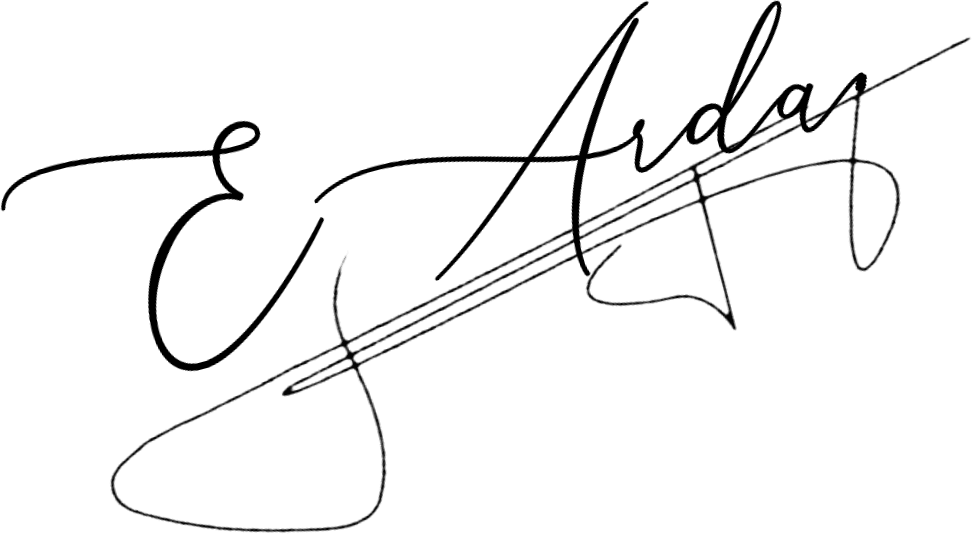 E Arday